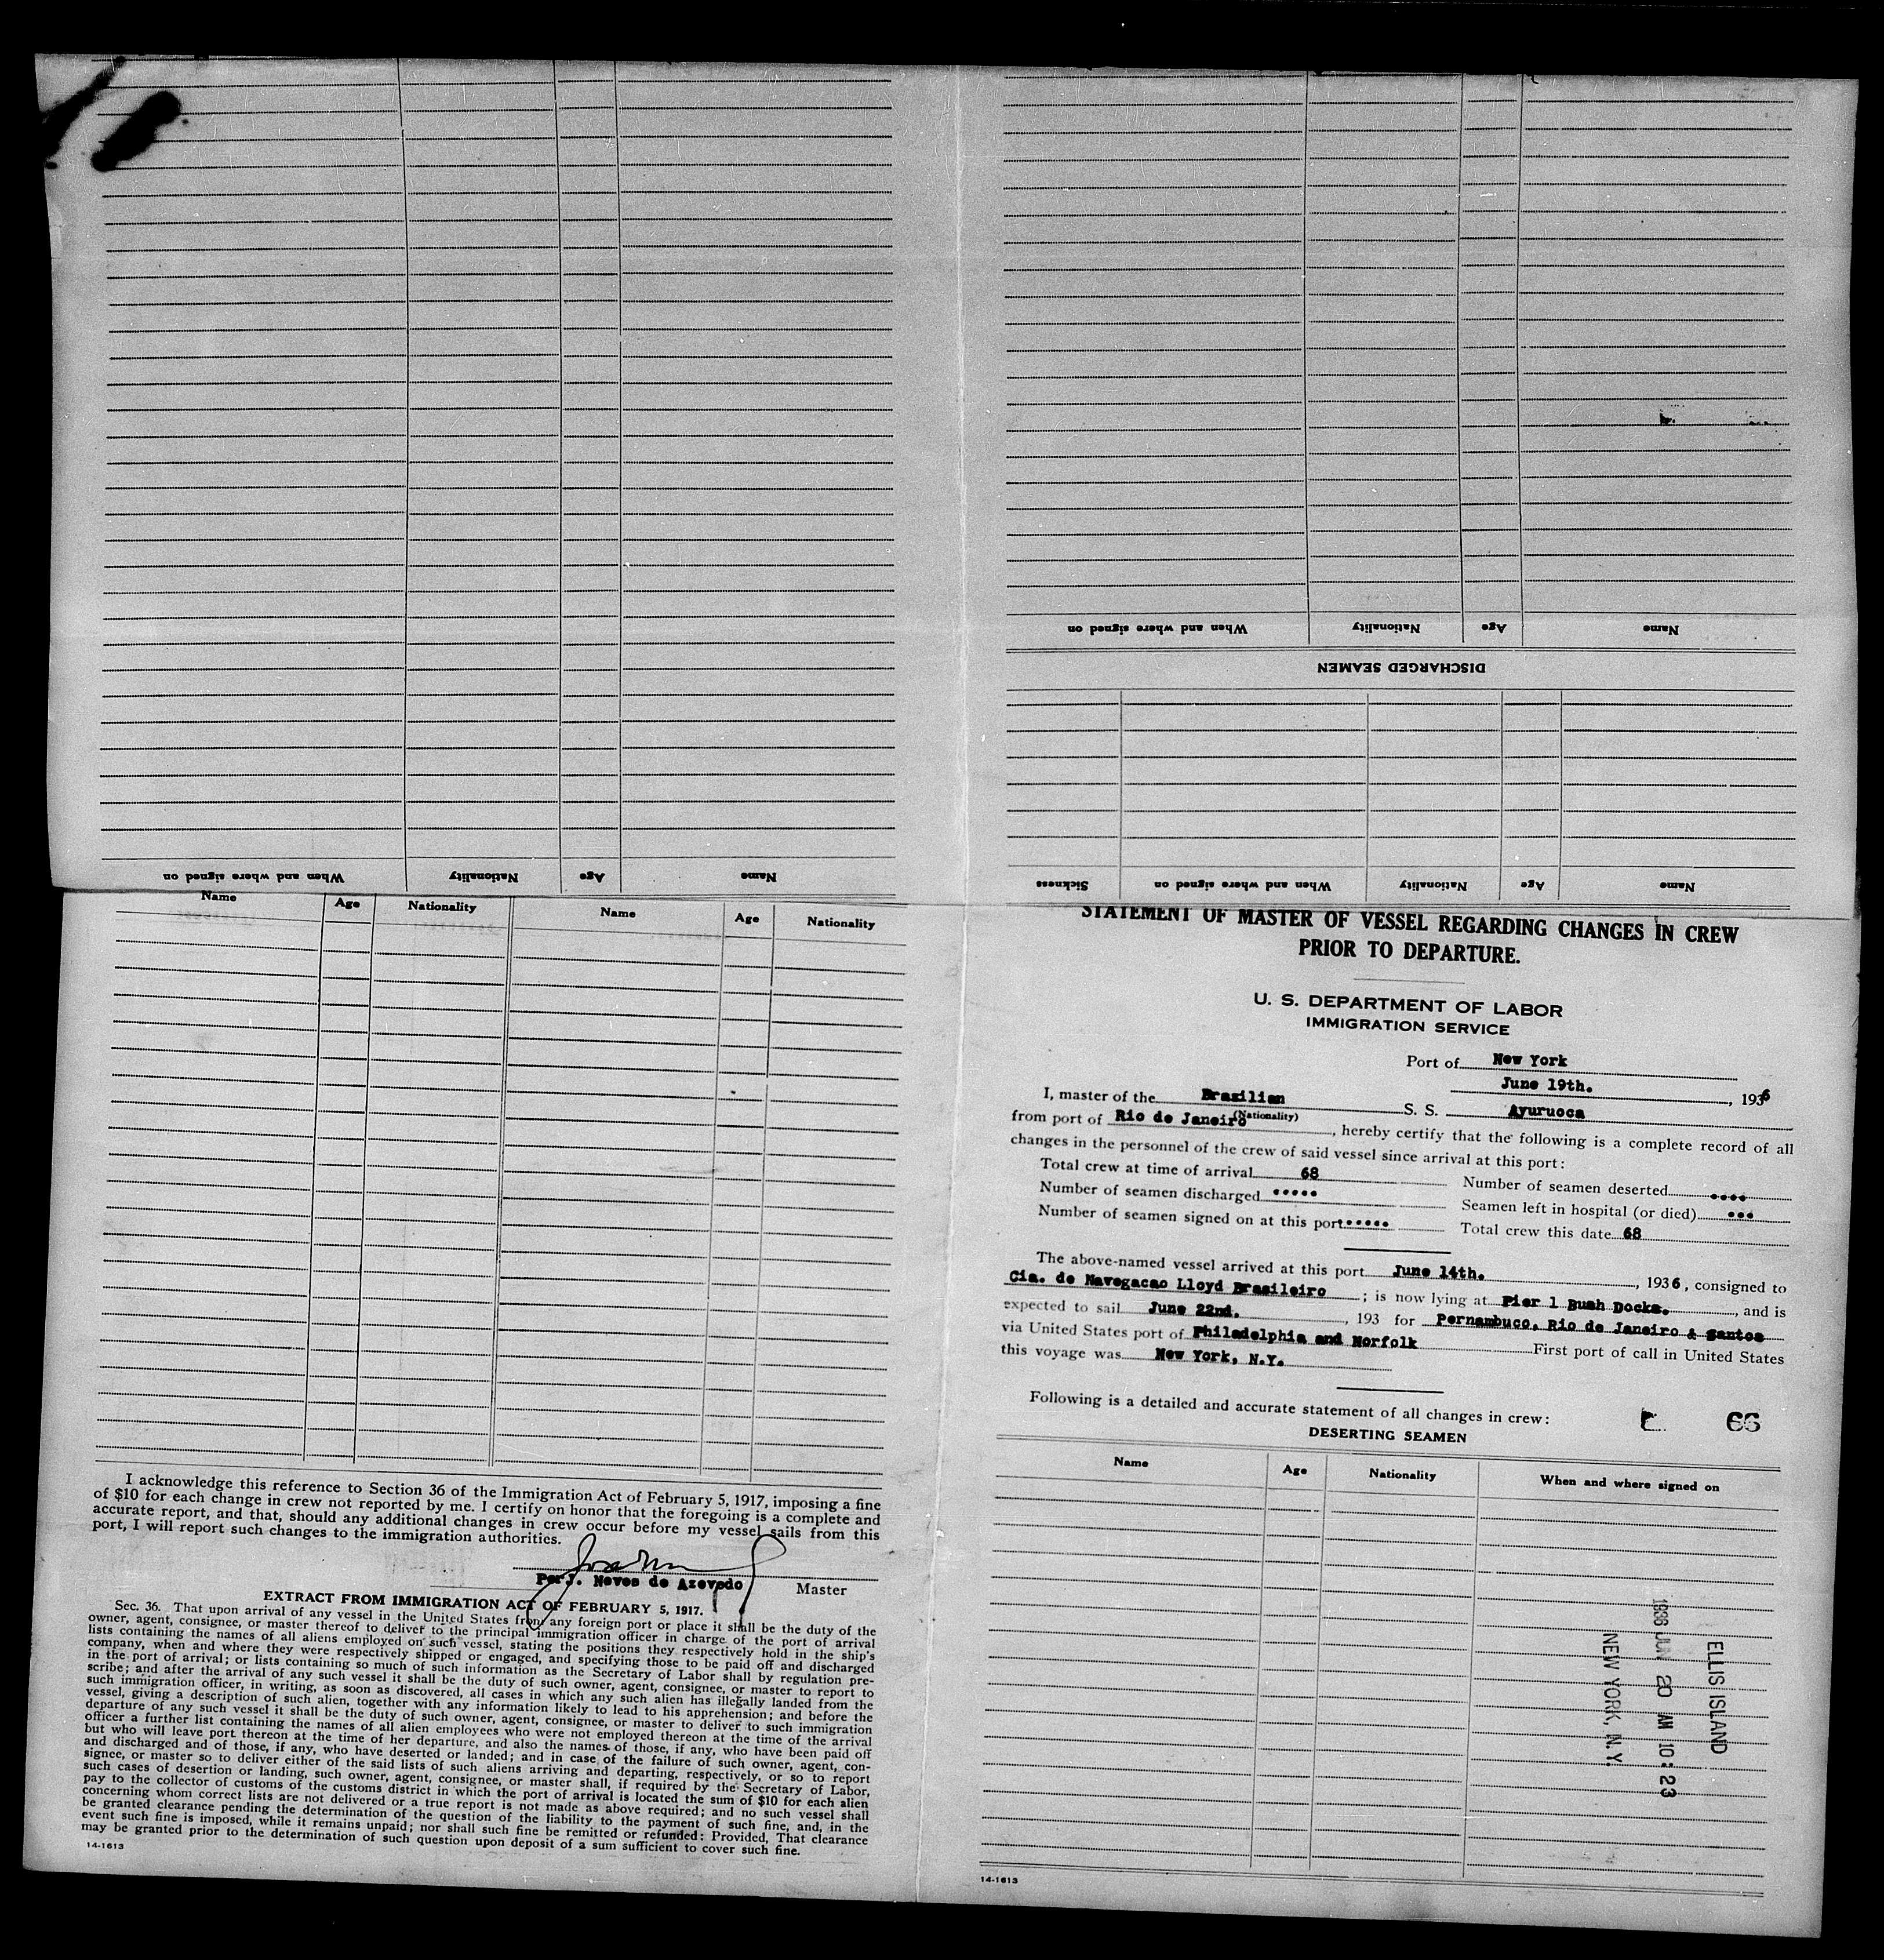 When and where signed on Nationality Age Name
When and where signed on Nationality Age Name
DISCHARGED SEAMEN
Sickness When and where signed on Nationality Age Name
Name Age Nationality Name Age Nationality
I acknowledge this reference to Section 36 of the Immigration Act of February 5, 1917, imposing a fine
of $10 for each change in crew not reported by me. I certify on honor that the foregoing is a complete and
accurate report, and that, should any additional changes in crew occur before my vessel sails from this
port, I will report such changes to the immigration authorities.
Per J. Neves de Azevedo Master
EXTRACT FROM IMMIGRATION ACT OF FEBRUARY 5, 1917.
Sec. 36. That upon arrival of any vessel in the United States from any foreign port or place it shall be the duty of the
owner, agent, consignee, or master thereof to deliver to the principal immigration officer in charge of the port of arrival
lists containing the names of all aliens employed on such vessel, stating the positions they respectively hold in the ship's
company, when and where they were respectively shipped or engaged, and specifying those to be paid off and discharged
in the port of arrival; or lists containing so much of such information as the Secretary of Labor shall by regulation pre-
scribe; and after the arrival of any such vessel it shall be the duty of such owner, agent, consignee, or master to report to
such immigration officer, in writing, as soon as discovered, all cases in which any such alien has illegally landed from the
vessel, giving a description of such alien, together with any information likely to lead to his apprehension; and before the
departure of any such vessel it shall be the duty of such owner, agent, consignee, or master to deliver to such immigration
officer a further list containing the names of all alien employees who were not employed thereon at the time of the arrival
but who will leave port thereon at the time of her departure, and also the names of those, if any, who have been paid off
and discharged and of those, if any, who have deserted or landed; and in case of the failure of such owner, agent, con-
signee, or master so to deliver either of the said lists of such aliens arriving and departing, respectively, or so to report
such cases of desertion or landing, such owner, agent, consignee, or master shall, if required by the Secretary of Labor,
pay to the collector of customs of the customs district in which the port of arrival is located the sum of $10 for each alien
concerning whom correct lists are not delivered or a true report is not made as above required; and no such vessel shall
be granted clearance pending the determination of the question of the liability to the payment of such fine, and, in the
event such fine is imposed, while it remains unpaid; nor shall such fine be remitted or refunded: Provided, That clearance
may be granted prior to the determination of such question upon deposit of a sum sufficient to cover such fine.
14-1613
STATEMENT OF MASTER OF VESSEL REGARDING CHANGES IN CREW
PRIOR TO DEPARTURE.
U. S. DEPARTMENT OF LABOR
IMMIGRATION SERVICE
Port of New York
June 19th. , 1936
I, master of the Brazilian S. S. Ayuruoca
(Nationality)
from port of Rio de Janeiro , hereby certify that the following is a complete record of all
changes in the personnel of the crew of said vessel since arrival at this port:
Total crew at time of arrival 68 Number of seamen deserted ....
Number of seamen discharged ..... Seamen left in hospital (or died) ...
Number of seamen signed on at this port ..... Total crew this date 68
The above-named vessel arrived at this port June 14th. , 1936, consigned to
Cia. de Navegacao Lloyd Brasileiro ; is now lying at Pier 1 Bush Docks. , and is
expected to sail June 22nd. , 193 for Pernambuco, Rio de Janeiro & Santos
via United States port of Philadelphia and Norfolk First port of call in United States
this voyage was New York, N.Y.
Following is a detailed and accurate statement of all changes in crew: 66
DESERTING SEAMEN
Name Age Nationality When and where signed on
ELLIS ISLAND
1936 JUN 20 AM 10:23
NEW YORK, N. Y.
14-1613